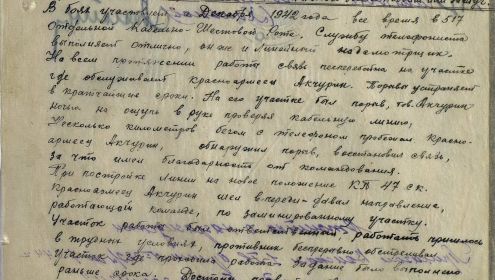 В боях участвует с Декабря 1942 года все время в 517
Отдельной Кабельно-Шестовой Роте. Службу телефониста
выполняет отлично, он же и линейный надсмотрщик.
На всем протяжении работы связь бесперебойна на участке
где обслуживает красноармеец Акчурин. Порывы устраняет
в кратчайшие сроки. На его участке был порыв, тов. Акчурин
ночью на ощупь в руке проверяя кабельную линию,
Несколько километров бегом с телефоном пробежал Красно-
армеец Акчурин, обнаружил порыв, восстановил связь,
за что имел благодарность от командования.
При постройке линии на новое положение КП 47 ск.
Красноармеец Акчурин шел впереди давал направление,
работающей команде, по заминированному участку.
Участок работы был ответственный работать пришлось
в трудных условиях, противник беспрерывно обстреливал
участок где проходила работа. Задание было выполнено
раньше срока. Достоин